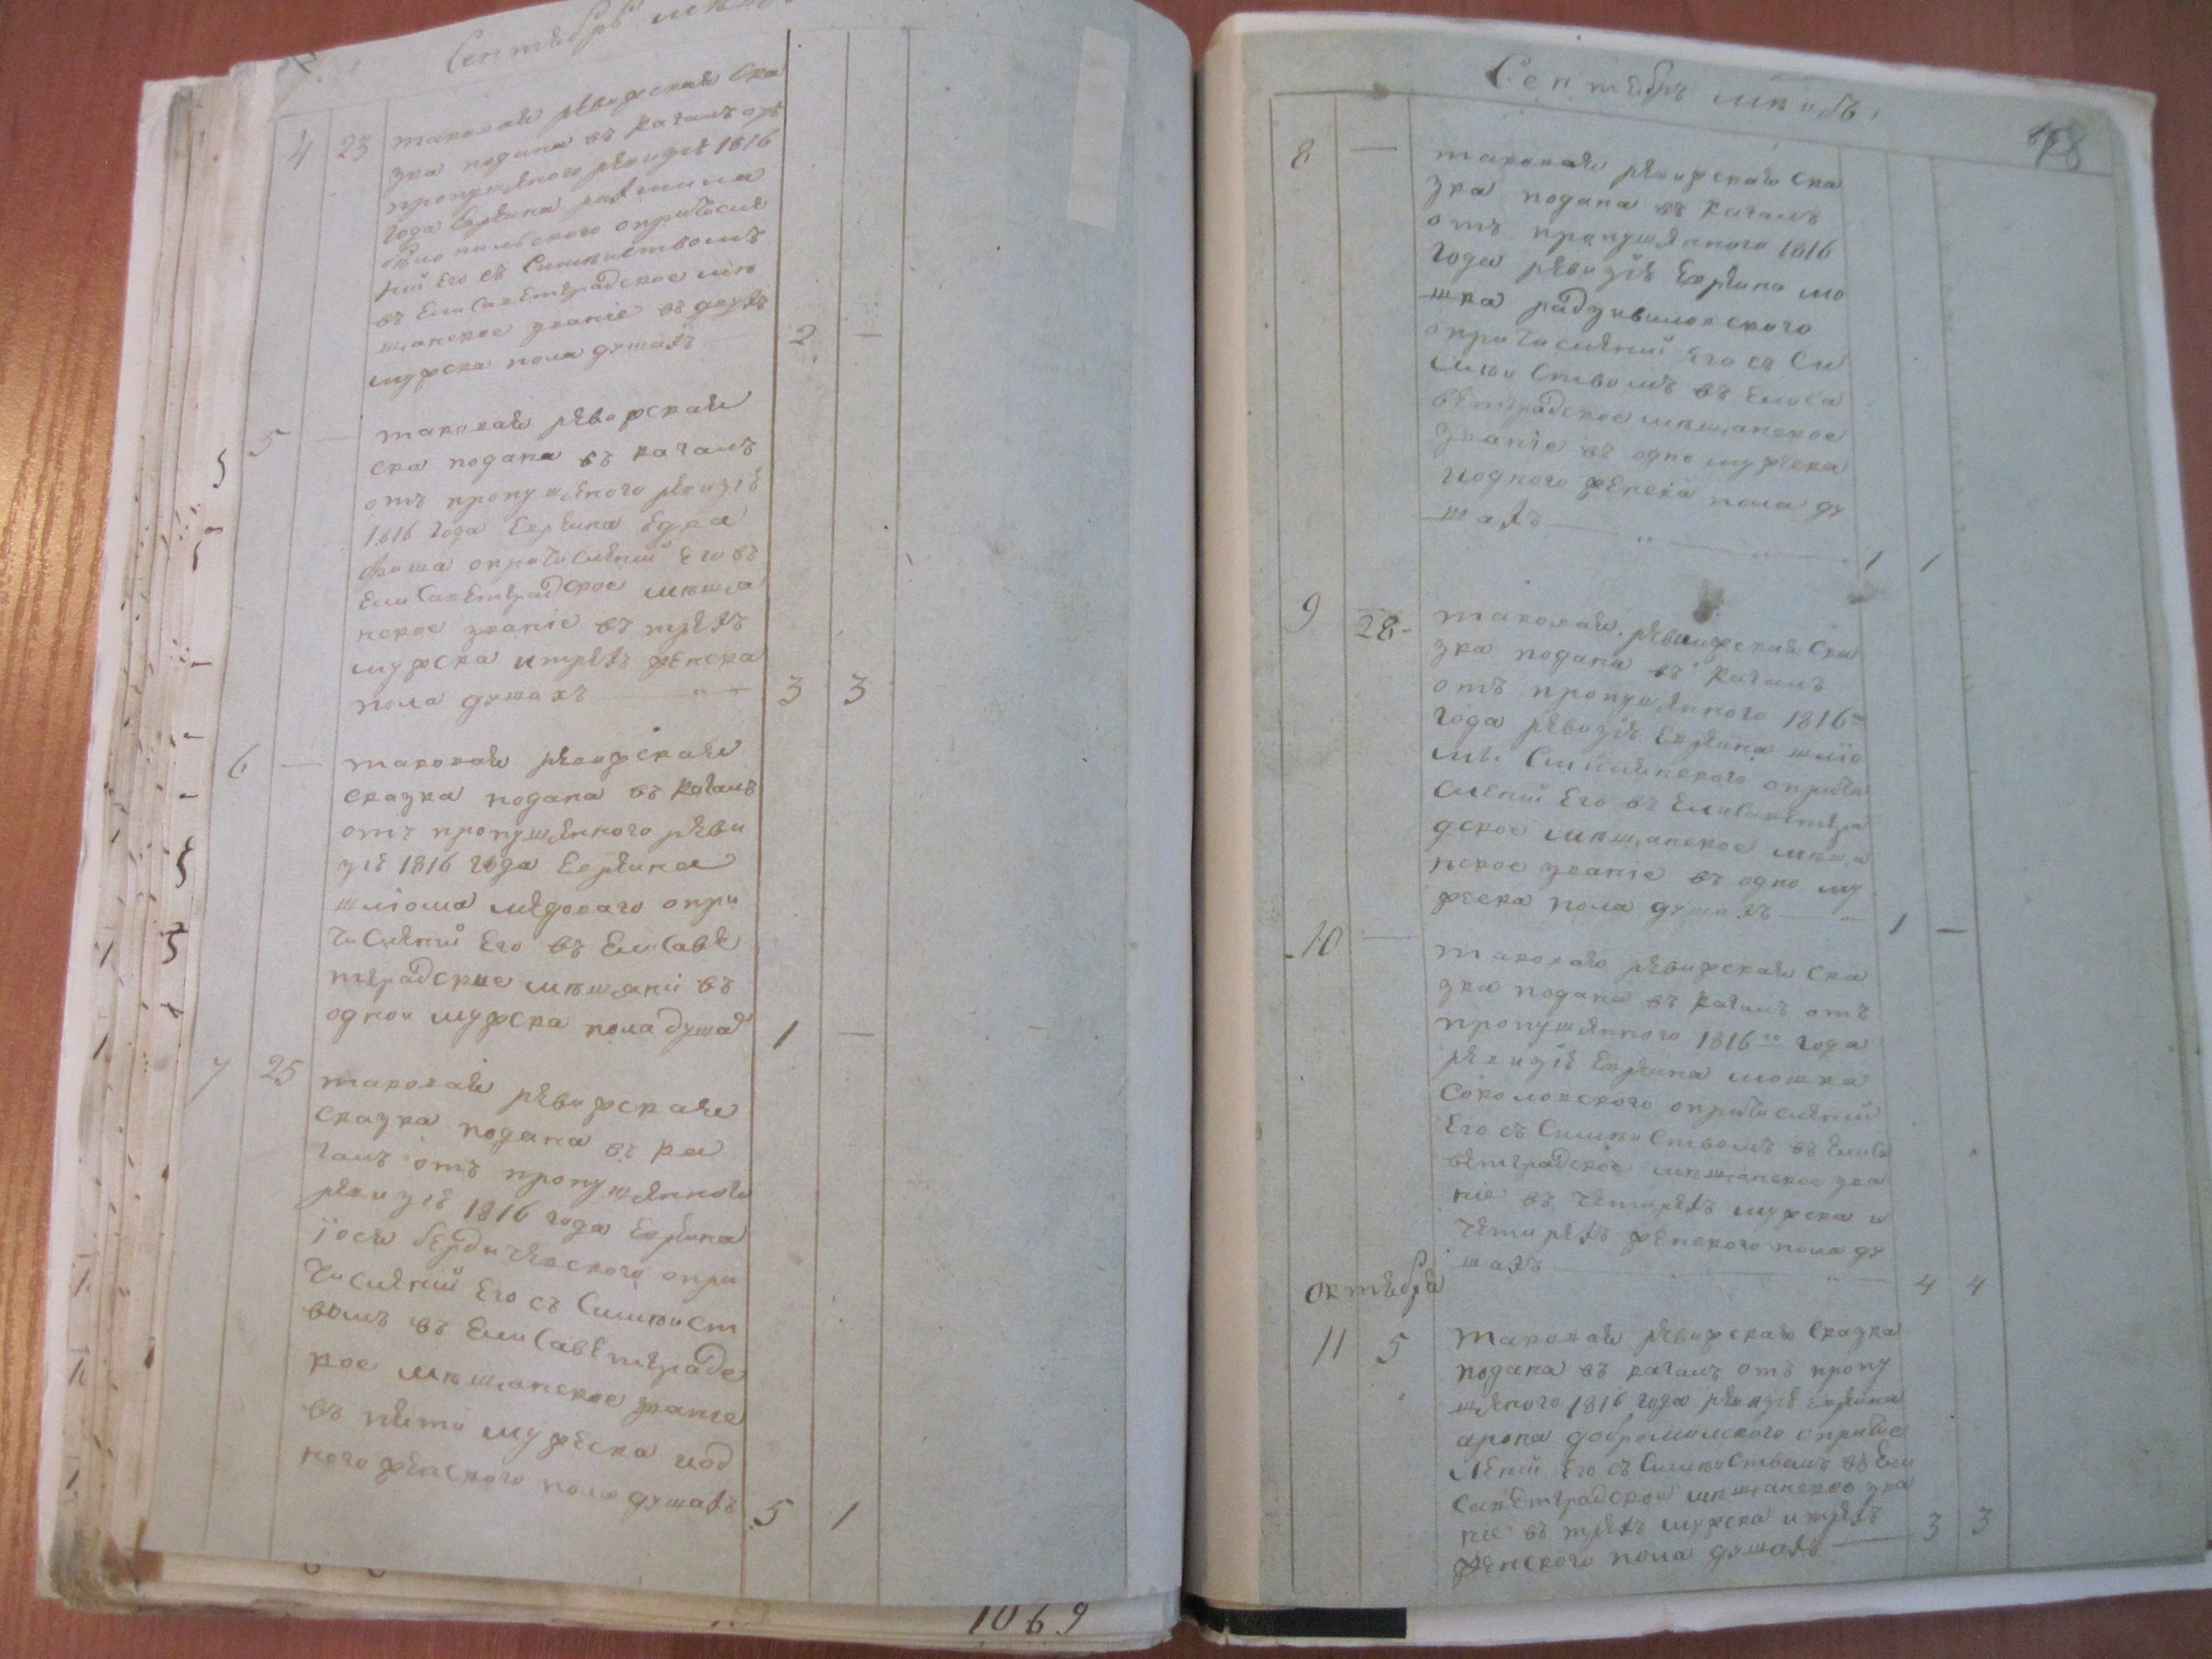 Сентябрь
4 23 таковая ревизская ска
зка подана в кагалъ отъ
пропущеного ревизіе 1816
года Евреина
опричисле
ніи Его съ Симействомъ
въ Елисаветградское мѣ
щанское званіе въ двухъ
мужска пола душахъ 2 —
5 — таковая ревизская
ска подана въ кагалъ
отъ пропущеного ревизіе
1816 года Евреина
опричисленіи Его въ
Елисаветградское мѣща
нское званіе въ трехъ
мужска итрехъ женска
пола душахъ — 3 3
6 — таковая ревизская
сказка подана въ Кагалъ
отъ пропущенного реви
зіе 1816 года Еврейна
шліома медоваго опри
численіи Его въ Елисаве
тградские мѣщани въ
однои мужска пола душах 1 —
7 25 таковая ревизская
сказка подана въ ка
галъ отъ пропущенного
ревизіе 1816 года Евреина
іося бердичевского опри
численіи Его съ Симейст
вомъ въ Елисаветградс
кое мѣщанское званіе
въ пяти мужеска иод
ного женского пола душахъ 5 1
1069
Сентябрь мѣсяць
8 — таковая ревизская ска
зка подана въ кагалъ
отъ пропущенного 1816
года ревизіе Евреина мо
шка радзивиловского
опричисленіи Его съ Си
мѣйствомъ въ Елиса
ветградское мѣщанское
званіе въ одно мужеска
иодного женска пола ду
шахъ — 1 1
9 28 таковая ревизская ска
зка подана въ Кагалъ
отъ пропущенного 1816го
года ревизіе Евреина шліо
мы опричи
сленіи Его въ Елисаветгра
дское мѣщанское мѣща
нское званіе въ одно му
жеска пола душахъ — 1 —
10 — таковаго ревизская ска
зка подана въ кагалъ отъ
пропущенного 1816го года
ревизіе Евреина мошка
Соколовского опричисленіи
Его съ Симействомъ въ Елиса
ветградское мѣщанское зва
ніе въ четирехъ мужска и
четирехъ женского пола ду
шахъ — 4 4
октября
11 5 таковая ревизская сказка
подана въ кагалъ отъ пропу
щеного 1816 года ревизіе Евреина
арона опричис
леніи Его съ Симействомъ въ Ели
саветградское мѣщанское зва
ніе въ трехъ мужска итрехъ
женского пола душахъ — 3 3